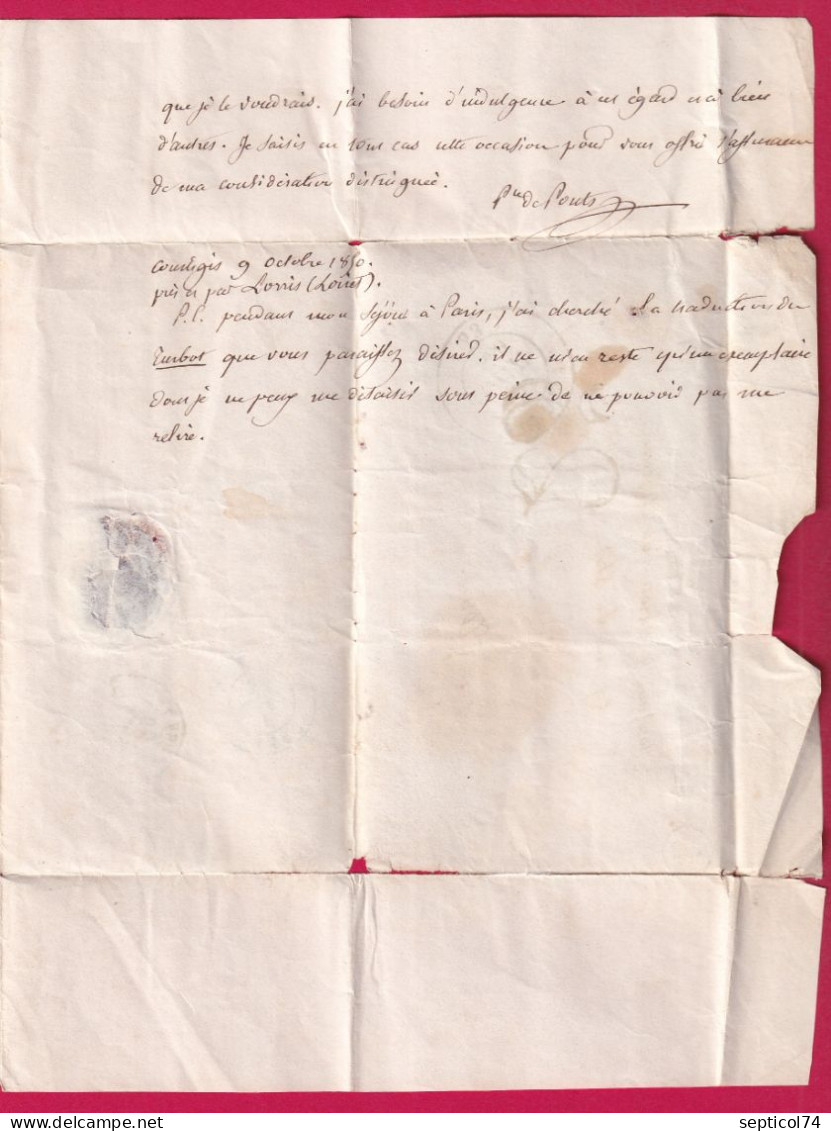 que je le voudrais. j'ai besoin d'indulgence à cet égard et à bien
d'autres. Je saisis en tous cas cette occasion pour vous offrir l'assurance
de ma considération distinguée.
de Ponts
9 octobre 1850.
près et par Lorris (Loiret).
pendant mon séjour à Paris, j'ai cherché la traduction du
Turbot que vous paraissez désirer. il ne m'en reste qu'un exemplaire
dont je ne peux me désaisir sous peine de ne pouvoir pas me
relire.
septicol74